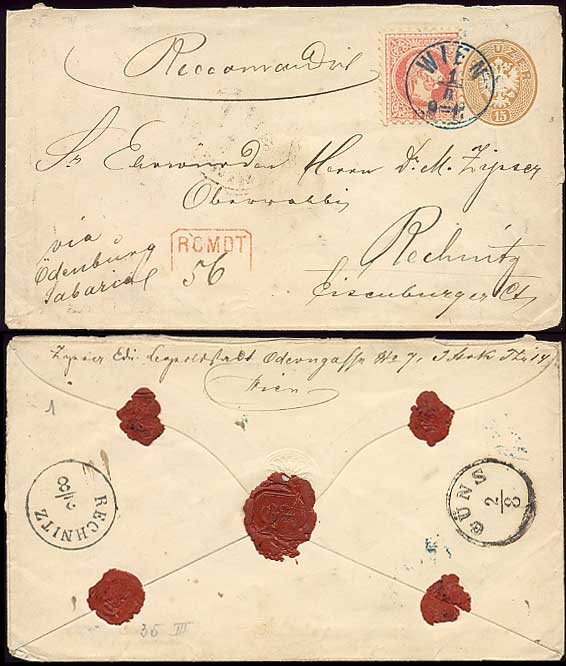 Reccomandirt
WIEN
1
8
KREUZER
15
Sr Ehrwürden Herrn Dr. M. Zipser
Oberrabbi
via
Ödenburg
Sabaria
RCMDT
56
Rechnitz
Eisenburger Ct.
Zipser Ed. Leopoldstadt Odeongasse No 7, 3 Stok Thür 14
Wien
1
RECHNITZ
2
8
GÜNS
2
8
35 III